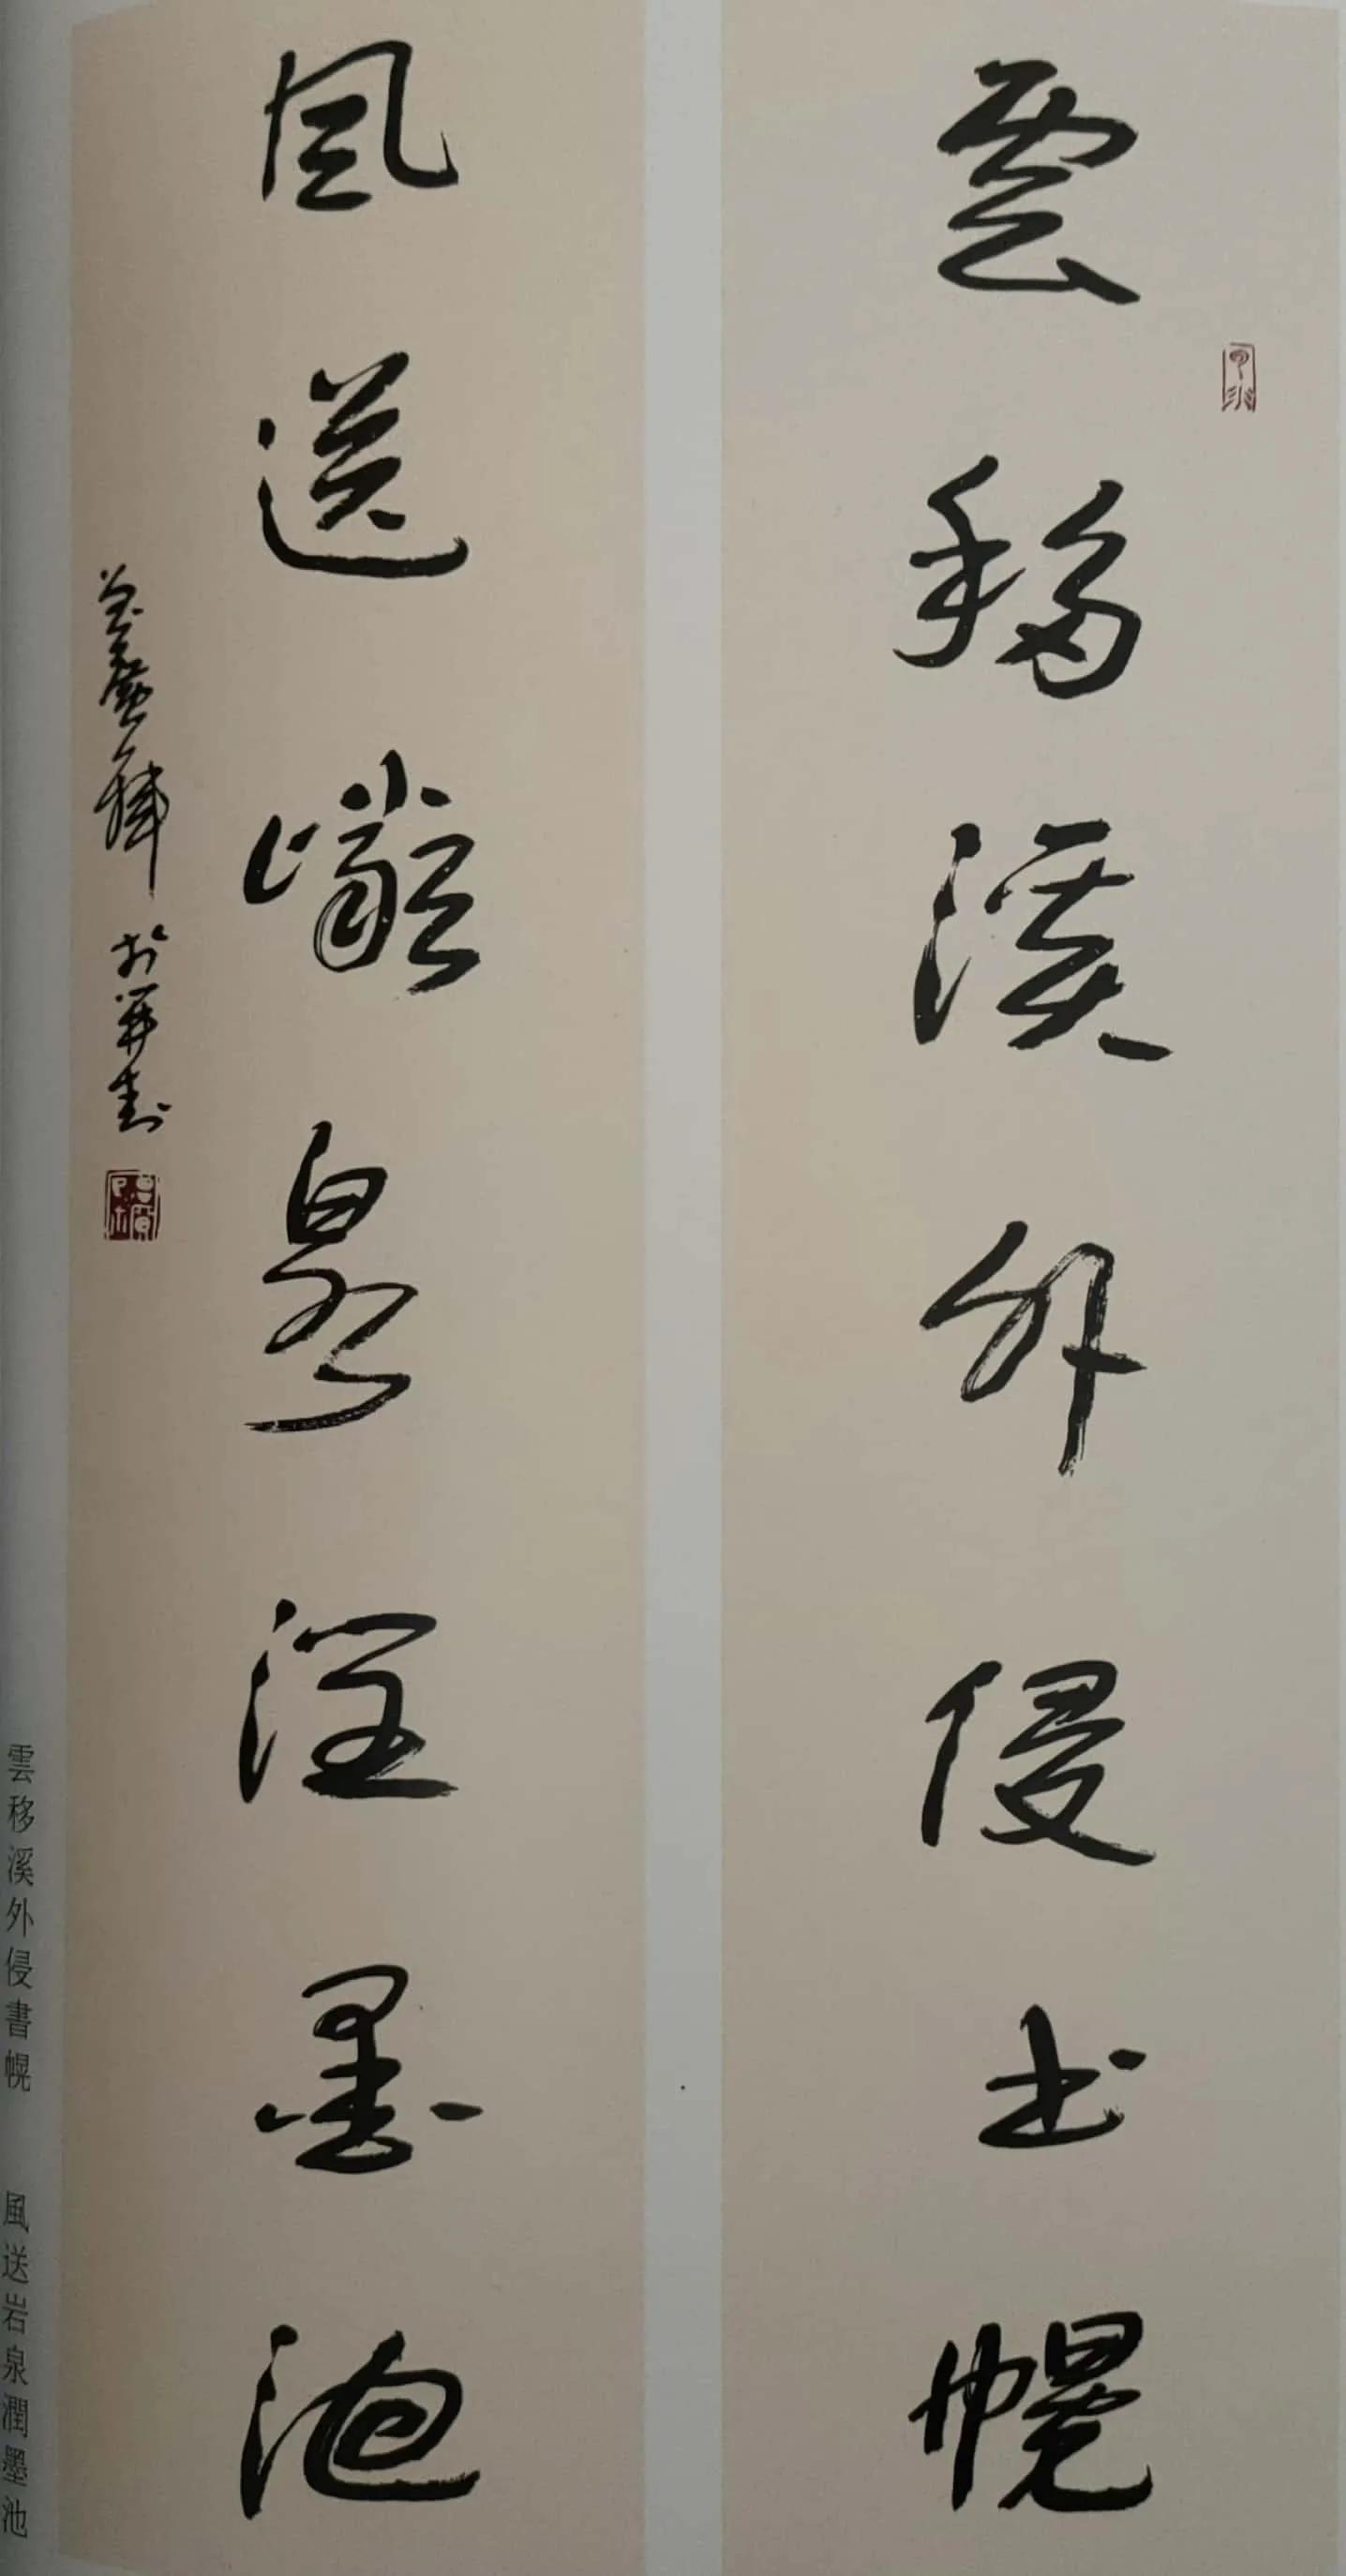 雲移溪外侵书幌
風送巖泉潤墨池
於并州
雲移溪外侵書幌 風送岩泉潤墨池